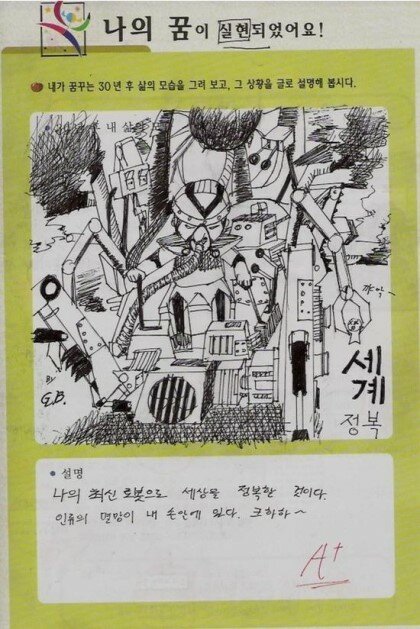 나의 꿈이 실현되었어요!
내가 꿈꾸는 30년 후 삶의 모습을 그려 보고, 그 상황을 글로 설명해 봅시다.
내 삶
꺄악~
세계
정복
BY
G.B.
설명
나의 최신 로봇으로 세상을 정복한 것이다.
인류의 멸망이 내 손안에 있다. 크하하~
A+